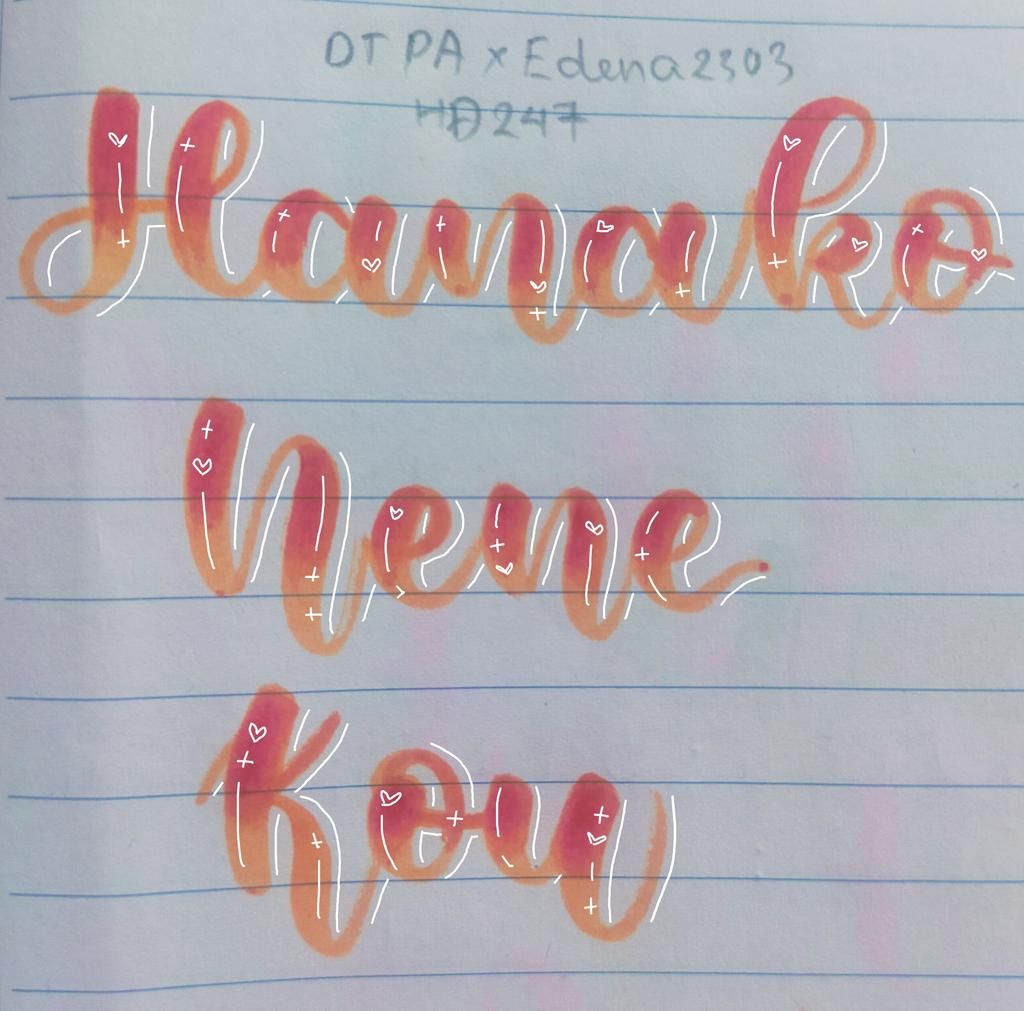 DT PA x Edena2303
HĐ247
Hanako
Nene
Kou